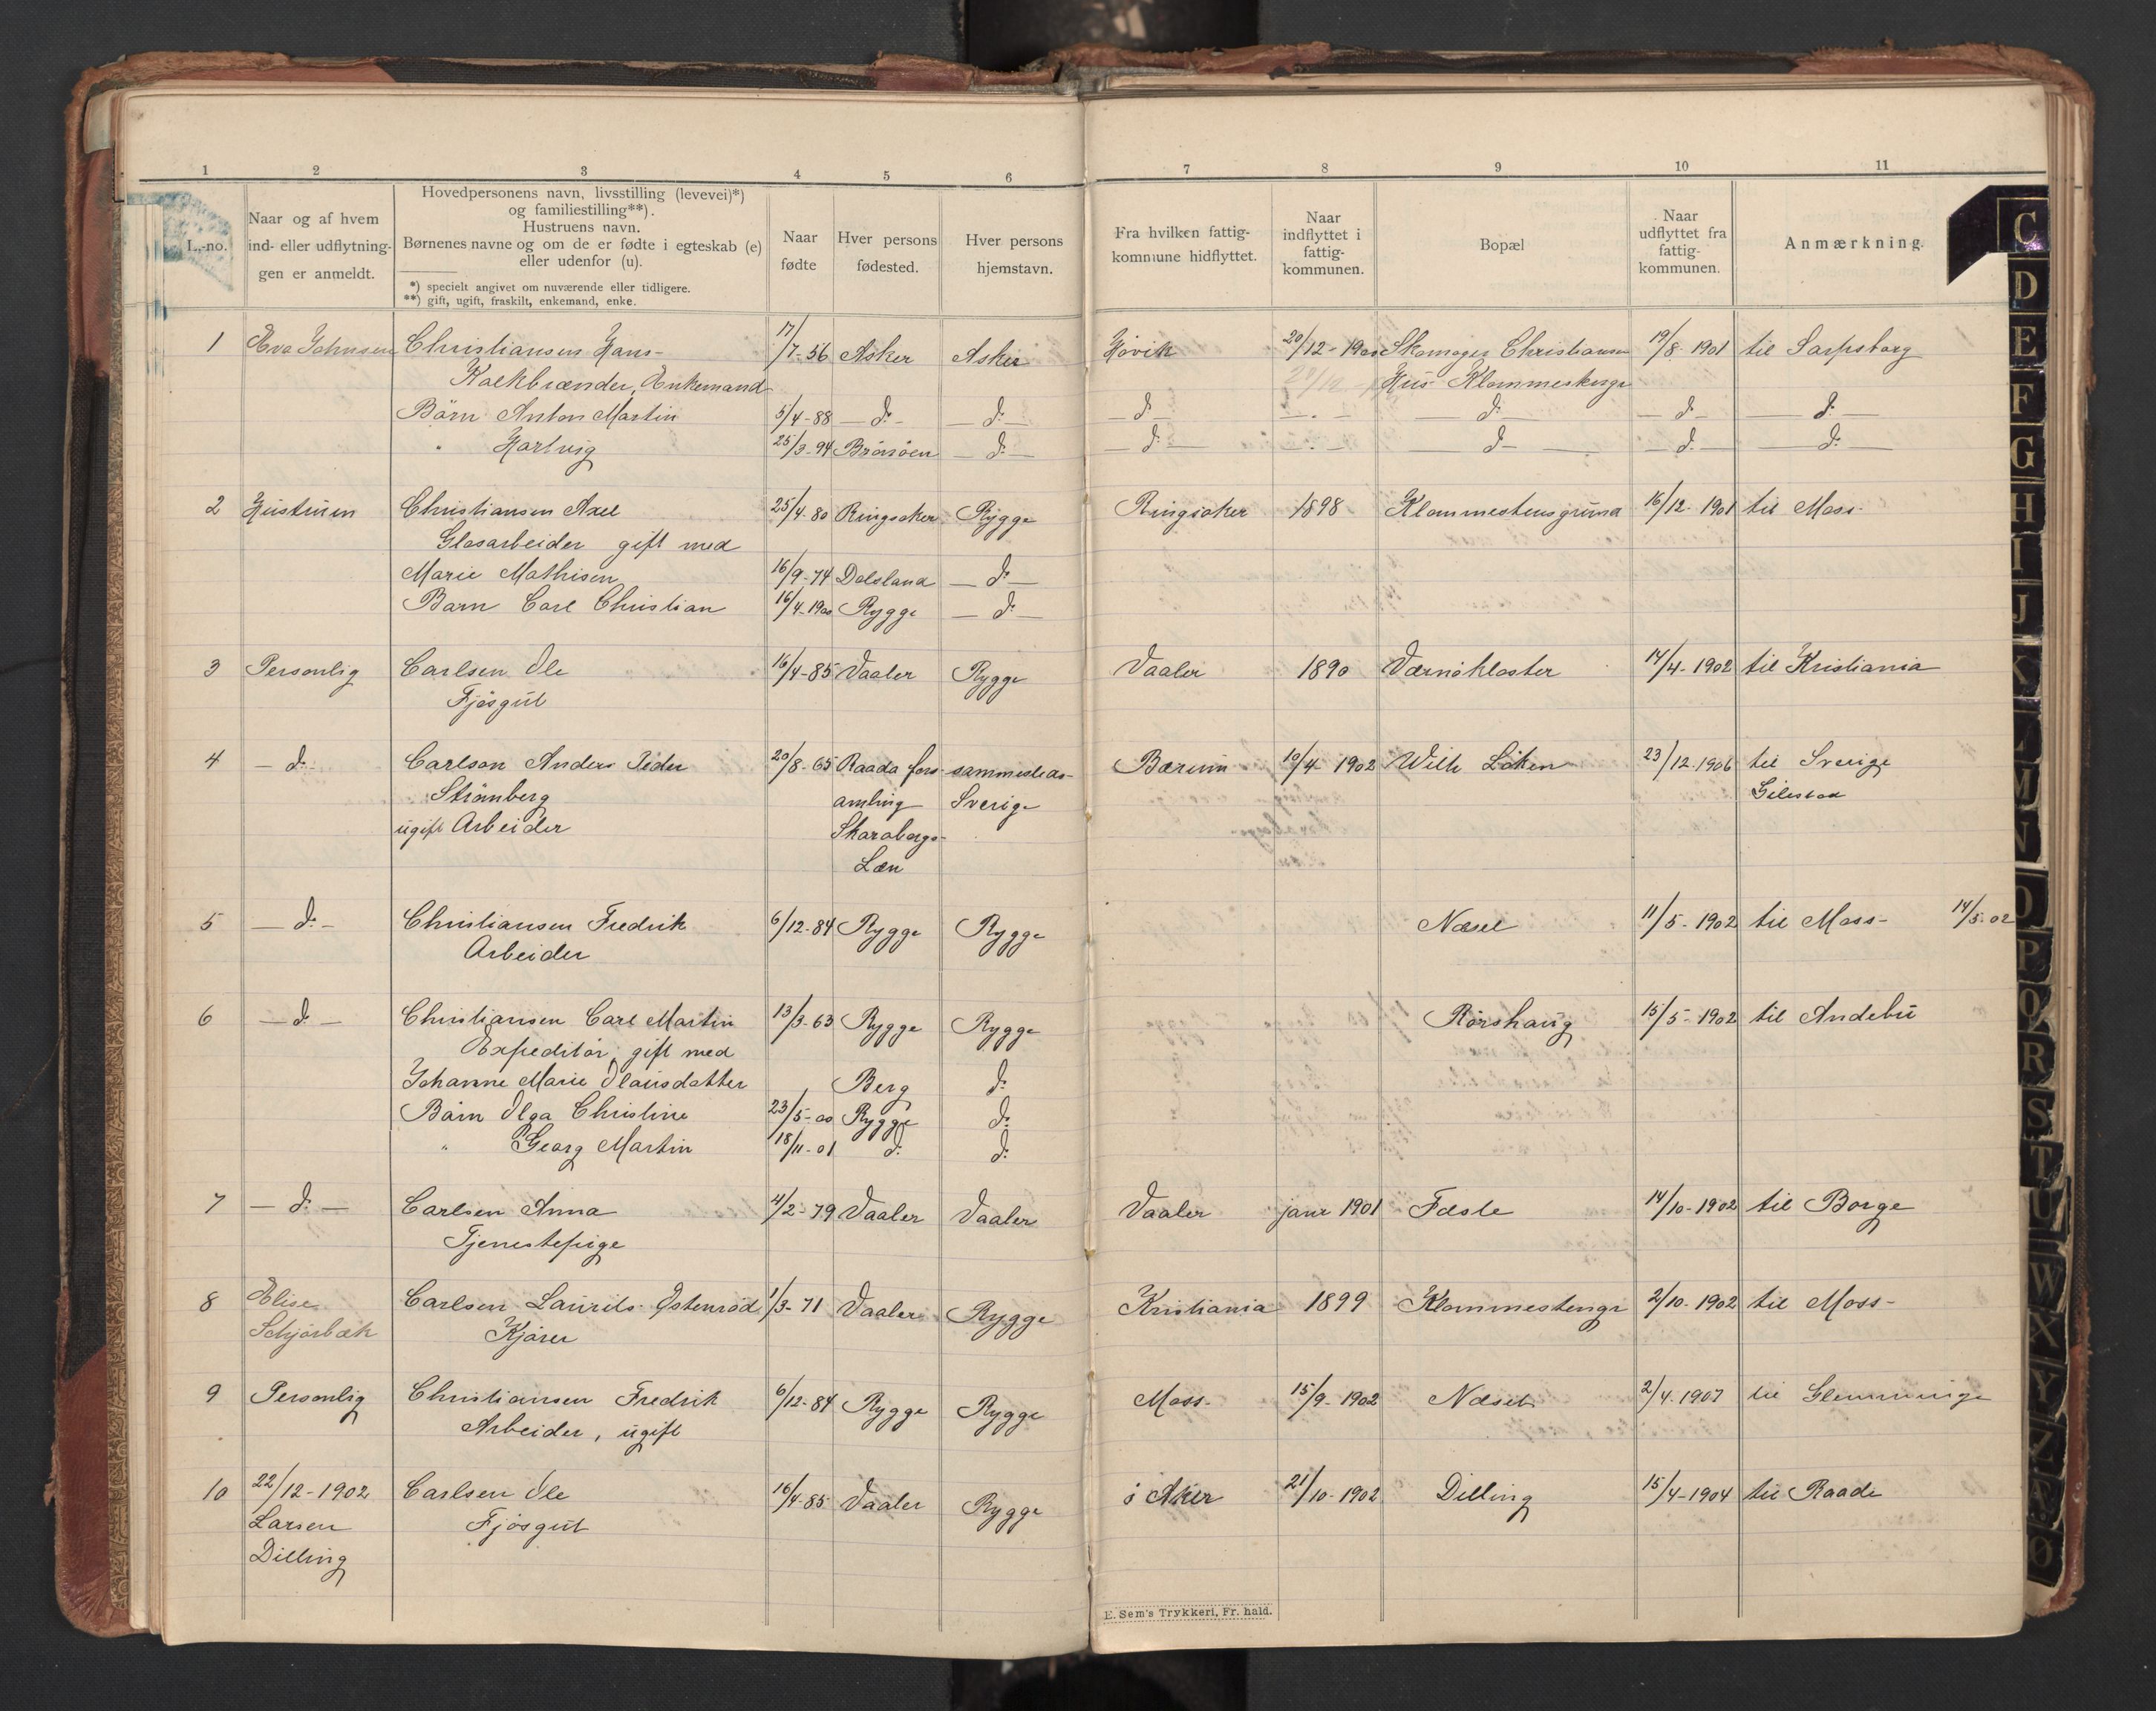 1 2 3 4 5 6 7 8 9 10 11
L.-no.
Naar og af hvem
ind- eller udflytnin-
gen er anmeldt.
Hovedpersonens navn, livsstilling (levevei)*)
og familiestilling**).
Hustruens navn.
Børnenes navne og om de er fødte i egteskab (e)
eller udenfor (u).
*) specielt angivet om nuværende eller tidligere.
**) gift, ugift, fraskilt, enkemand, enke.
Naar
fødte
Hver persons
fødested.
Hver persons
hjemstavn.
Fra hvilken fattig-
kommune hidflyttet.
Naar
indflyttet i
fattig-
kommunen.
Bopæl
Naar
udflyttet fra
fattig-
kommunen.
Anmærkning.
1 Eva Johnsen Christiansen Hans- 17/7-56 Asker Asker Høvik 20/12-1900 Skomager Christiansen 19/8-1901 til Sarpsborg
Kalkbrænder, Enkemand Hus
Børn Anton Martin 5/4-88 — d: — — d: — — d — — . — — d: — — d — — d: —
" Hartvig 25/3-94 Brönöen — d: — — d: — — . — — d — — d. — — d: —
2 Hustruen Christiansen Axel 25/4-80 Ringsaker Rygge Ringsaker 1898 Klommestensgrund 16/12-1901 til Moss-
Glasarbeider gift med
Marie Mathisen 16/9-74 Dalsland — d: —
Barn Carl Christian 16/4-1900 Rygge — d: —
3 Personlig Carlsen Ole 16/4-85 Vaaler Rygge Vaaler 1890 Værnökloster 14/4-1902 til Kristiania
Fjösgut
4 — d: — Carlson Anders Peder 20/8-65 Raada fors- Bærum 10/4-1902 Wilh Löken 23/12.1906 til Sverige
Strömberg amling Sverige
ugift Arbeider Skaraborgs-
Læn
5 — d: — Christiansen Fredrik 6/12-84 Rygge Rygge Næset 11/5-1902 til Moss- 14/5.02
Arbeider
6 — d — Christiansen Carl Martin 13/3-63 Rygge Rygge Rörshaug 15/5-1902 til Andebu
Expeditör, gift med
Johanne Marie Olausdatter Berg d:
Börn Olga Christine 23/5-00 Rygge d:
" Georg Martin 18/11-01 d: d:
7 — d: — Carlsen Anna 4/2-79 Vaaler Vaaler Vaaler janr 1901 Fæsle 14/10-1902 til Borge
Tjenestepige
8 Elise Carlsen Laurits Östenröd 1/3-71 Vaaler Rygge Kristiania 1899 Klommestengr 2/10-1902 til Moss-
Schjörbæk Kjörer
9 Personlig Christiansen Fredrik 6/12-84 Rygge Rygge Moss- 15/9-1902 Næset 2/4.1907 til Glemminge
Arbeider, ugift
10 22/12-1902 Carlsen Ole 16/4-85 Vaaler Rygge ö Aker 21/10-1902 Dilling 15/4-1904 til Raade
Larsen Fjösgut
Dilling
E. Sem's Trykkeri, Fr. hald.
C
D
E
F
G
H
I
J
K
L
M
N
O
P
Q
R
S
T
U
W
X
Y
Z
Æ
Ø